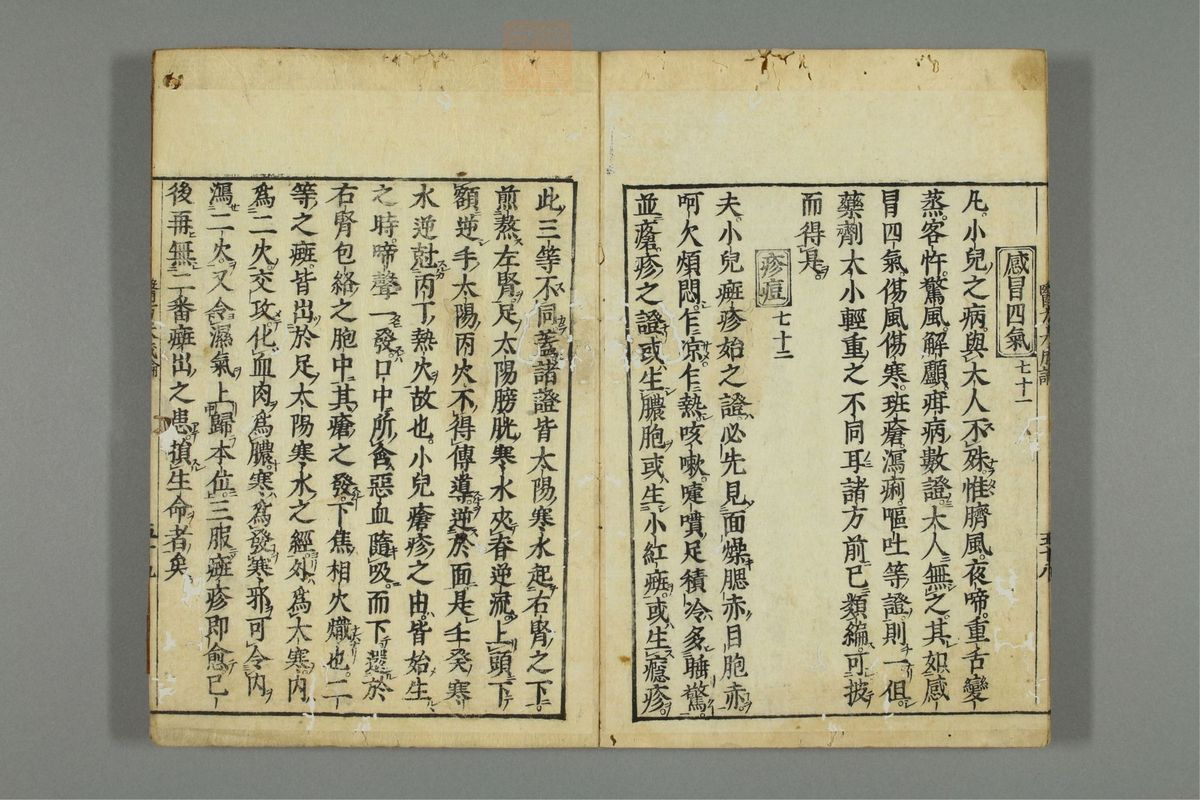 感冒四氣 七十一
凡小兒之病與大人不殊惟臍風夜啼重舌變
蒸客忤驚風解顱疳病數證大人無之其如感
冒四氣傷風傷寒班瘡瀉痢嘔吐等證則一但
藥劑大小輕重之不同耳諸方前已類編可披
而得具
疹痘 七十二
夫小兒癍疹始之證必先見面燥腮赤目胞赤
呵欠煩悶乍凉乍熱咳嗽嚏噴足積冷多睡驚
並瘡疹之證或生膿胞或生小紅癍或生癮疹
此三等不同盖諸證皆太陽寒水起右腎之下
煎熬左腎足太陽膀胱寒水夾脊逆流上頭下
額逆手太陽丙火不得傳導逆於面是壬癸寒
水逆尅丙丁熱火故也小兒瘡疹之由皆始生
之時啼聲一發口中所含惡血隨吸而下還於
右腎包絡之胞中其瘡之發下焦相火熾也二
等之癍皆出於足太陽寒水之經外爲太寒内
爲二火交攻化血肉爲膿寒爲發寒邪可令内
瀉二火又令濕氣上歸本位三服癍疹即愈已
後再無二番癍出之患損生命者矣